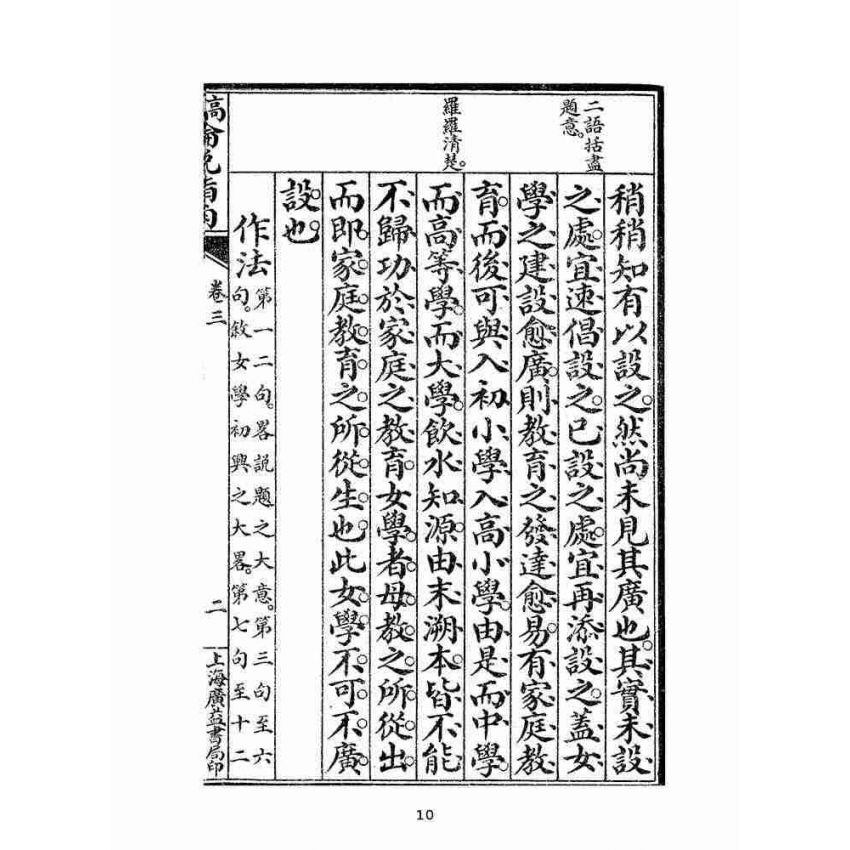 二語括盡
題意。
羅羅清楚。
稍稍知有以設之。然尚未見其廣也。其實未設
之處。宜速倡設之。已設之處。宜再添設之。蓋女
學之建設愈廣。則教育之發達愈易。有家庭教
育。而後可與入初小學入高小學。由是而中學
而高等學。而大學。飲水知源。由末溯本。皆不能
不歸功於家庭之教育。女學者。母教之所從出
而即家庭教育之所從生也。此女學不可不廣
設也。
作法
第一二句。畧説題之大意。第三句至六
句。敘女學初興之大畧。第七句至十二
卷三
二
上海廣益書局印
10